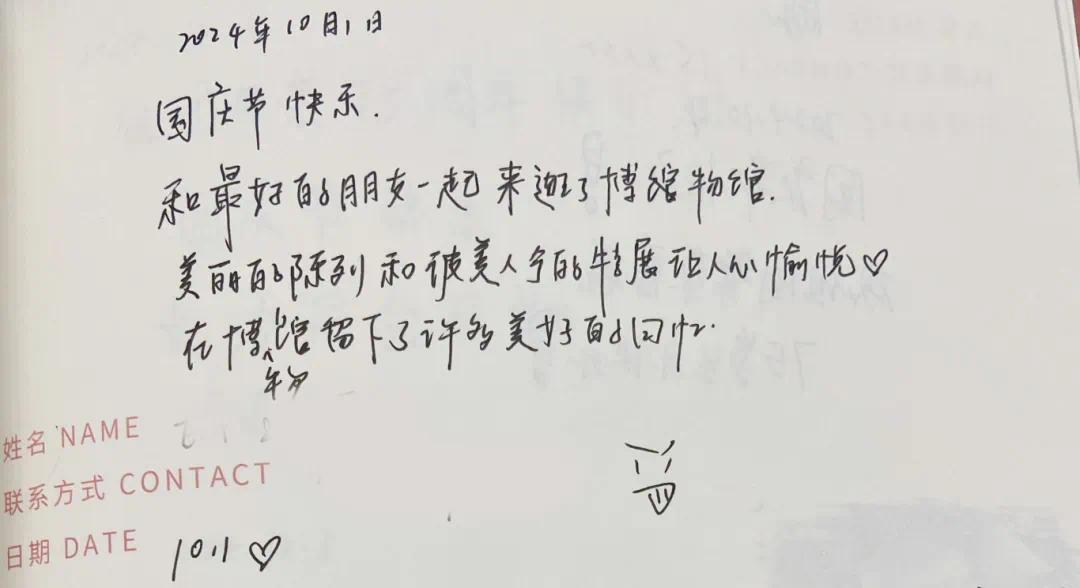 2024年10月1日
国庆节快乐.
和最好的朋友一起来逛了博馆物馆.
美丽的陈列和诶美人兮的特展让人心愉悦♡
在博物馆留下了许多美好的回忆.
姓名 NAME
联系方式 CONTACT
日期 DATE 10.1 ♡